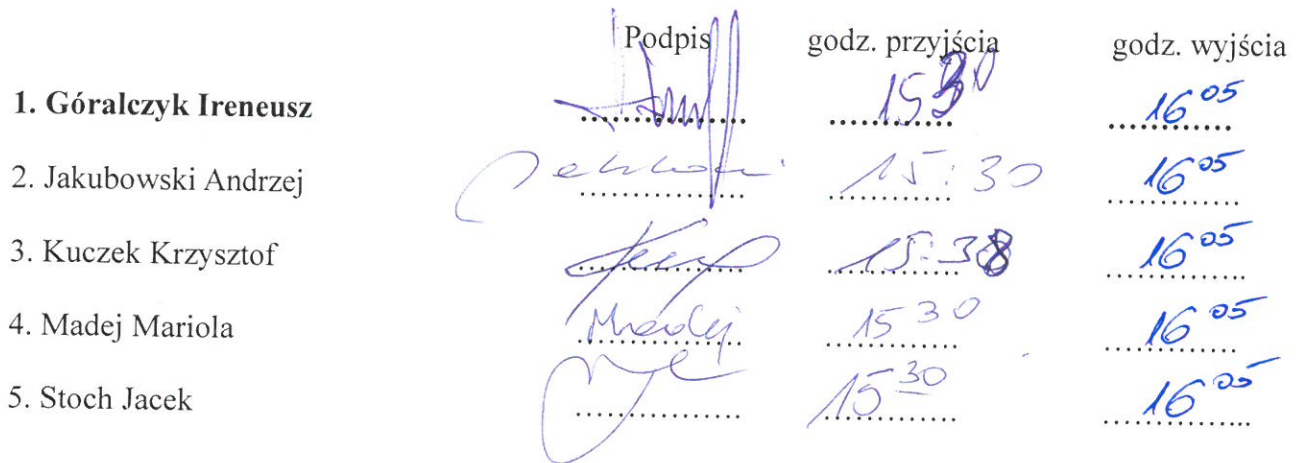 Podpis godz. przyjścia godz. wyjścia
1. Góralczyk Ireneusz .................. 15 30 16 05
2. Jakubowski Andrzej .................. 15:30 16 05
3. Kuczek Krzysztof .................. 15:38 16 05
4. Madej Mariola Madej 15 30 16 05
5. Stoch Jacek .................. 15 30 16 05